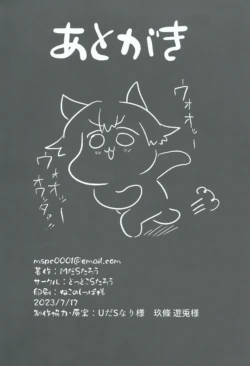 あとがき
ウオオッー
ウオオッー
オウンタッ!!
mspc0001@gmail.com
著作：Mだらたろう
サークル：とっとこらたろう
印刷：ねこのしっぽ様
2023/7/17
制作協力・原案：UだSなり様　玖條 遊兎様